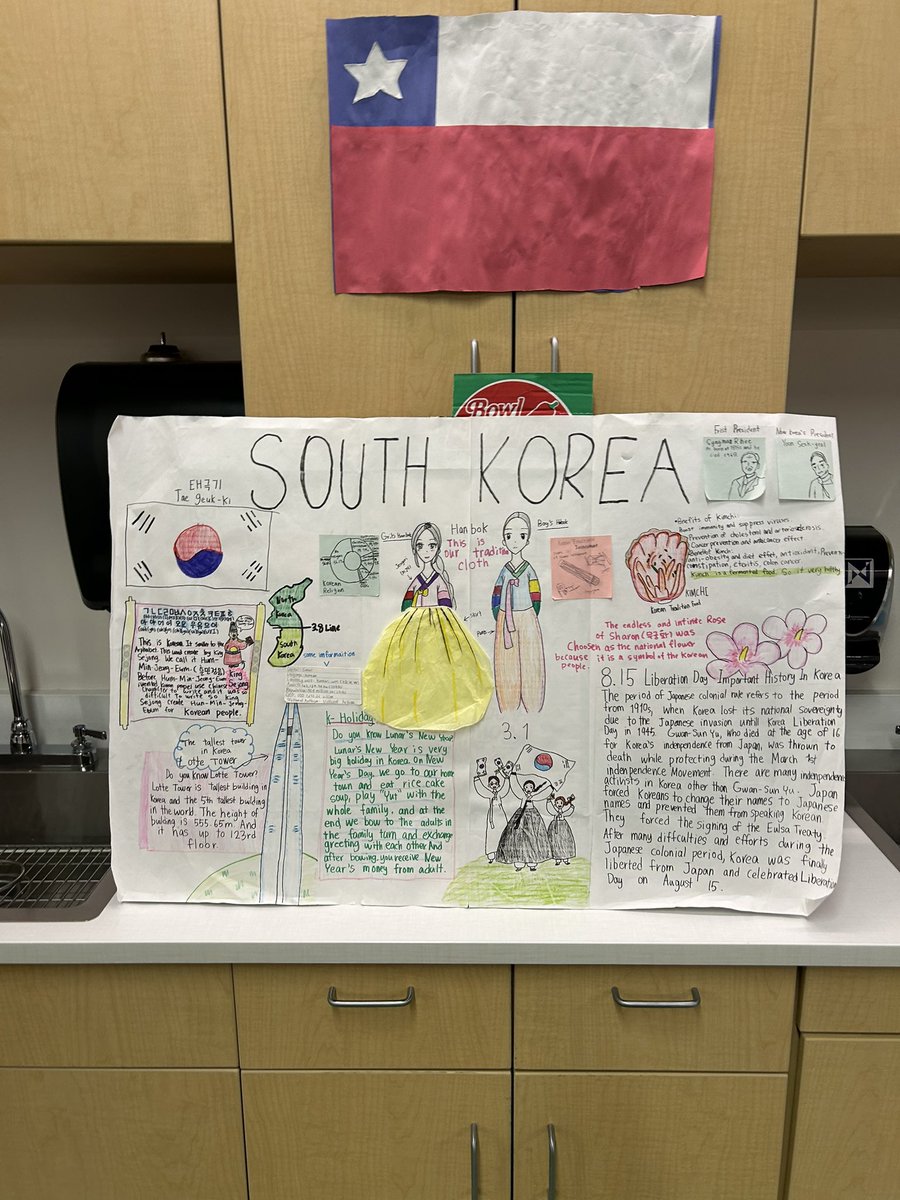 Bowl
SOUTH KOREA
First President
Syngman Rhee
New Korea's President
Yoon Seok-yeol
태극기
Tae geuk-ki
Korean
Religion
North
Korea
South
Korea
3.8 Line
some information
Hanbok
This is
our
cloth
KIMCHI
Korean Traditional Food
•Benefits of kimchi
Boost immunity and suppress viruses
Prevention of cholesterol and arteriosclerosis
Cancer prevention and anticancer effect
Benefist Kimchi
anti-obesity and diet effet, antioxidant, Prevent
constipation, Cteritis, colon cancer
Kimchi is a fermented food. So it very healthy
The endless and infinite Rose
of Sharon (무궁화) was
Choosen as the national flower
because it is a symbol of the Korean
people.
This is Korean. It similar to the
Alphabet. This was create by King
Sejong. We call it Hum-
Min-Jeong-Eum-(훈민정음)
Before Hum-Min-Jeong-Eum
invented, Korean people use Chinese
Character to write and it was so
difficult To write so King
Sejong Create Hun-Min-Jeong-
Eum for Korean people.
King
Sejong
The tallest tower
in Korea
Lotte Tower
Do you know Lotte Tower?
Lotte Tower is Tallest building in
Korea and the 5th tallest building
in the world. The height of
building is 555.65m And
it has up to 123rd
floor.
K-Holiday
Do you know Lunar's New Year
Lunar's New Year is very
big holiday in Korea. On New
Year's Day, we go to our home
town and eat rice cake
soup, play "Yut" with the
whole family, and at the
end we bow to the adults in
the family turn and exchange
greeting with each other And
after bowing, you receive New
Year's money from adult.
3.1
8.15 Liberation Day-Important History In Korea
The period of Japanese colonial rule refers to the period
from 1910s, when Korea lost its national sovereignty
due to the Japanese invasion untill Korea Liberation
Day in 1945. Gwan-Sun Yu, who died at the age of 16
for Korea's independence from Japan, was thrown to
death while protecting during the March 1st
independence Movement. There are many independence
activists in Korea other than Gwan-Sun Yu. Japan
forced Koreans to change their names to Japanese
names and prevented them from speaking Korean.
They forced the signing of the Eulsa Treaty.
After many difficulties and efforts during the
Japanese colonial period, Korea was finally
liberted from Japan and celebrated Liberation
Day on August 15.